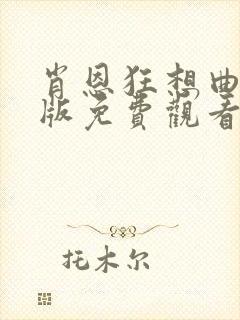 肖恩狂想曲
版免費觀看
托木尔